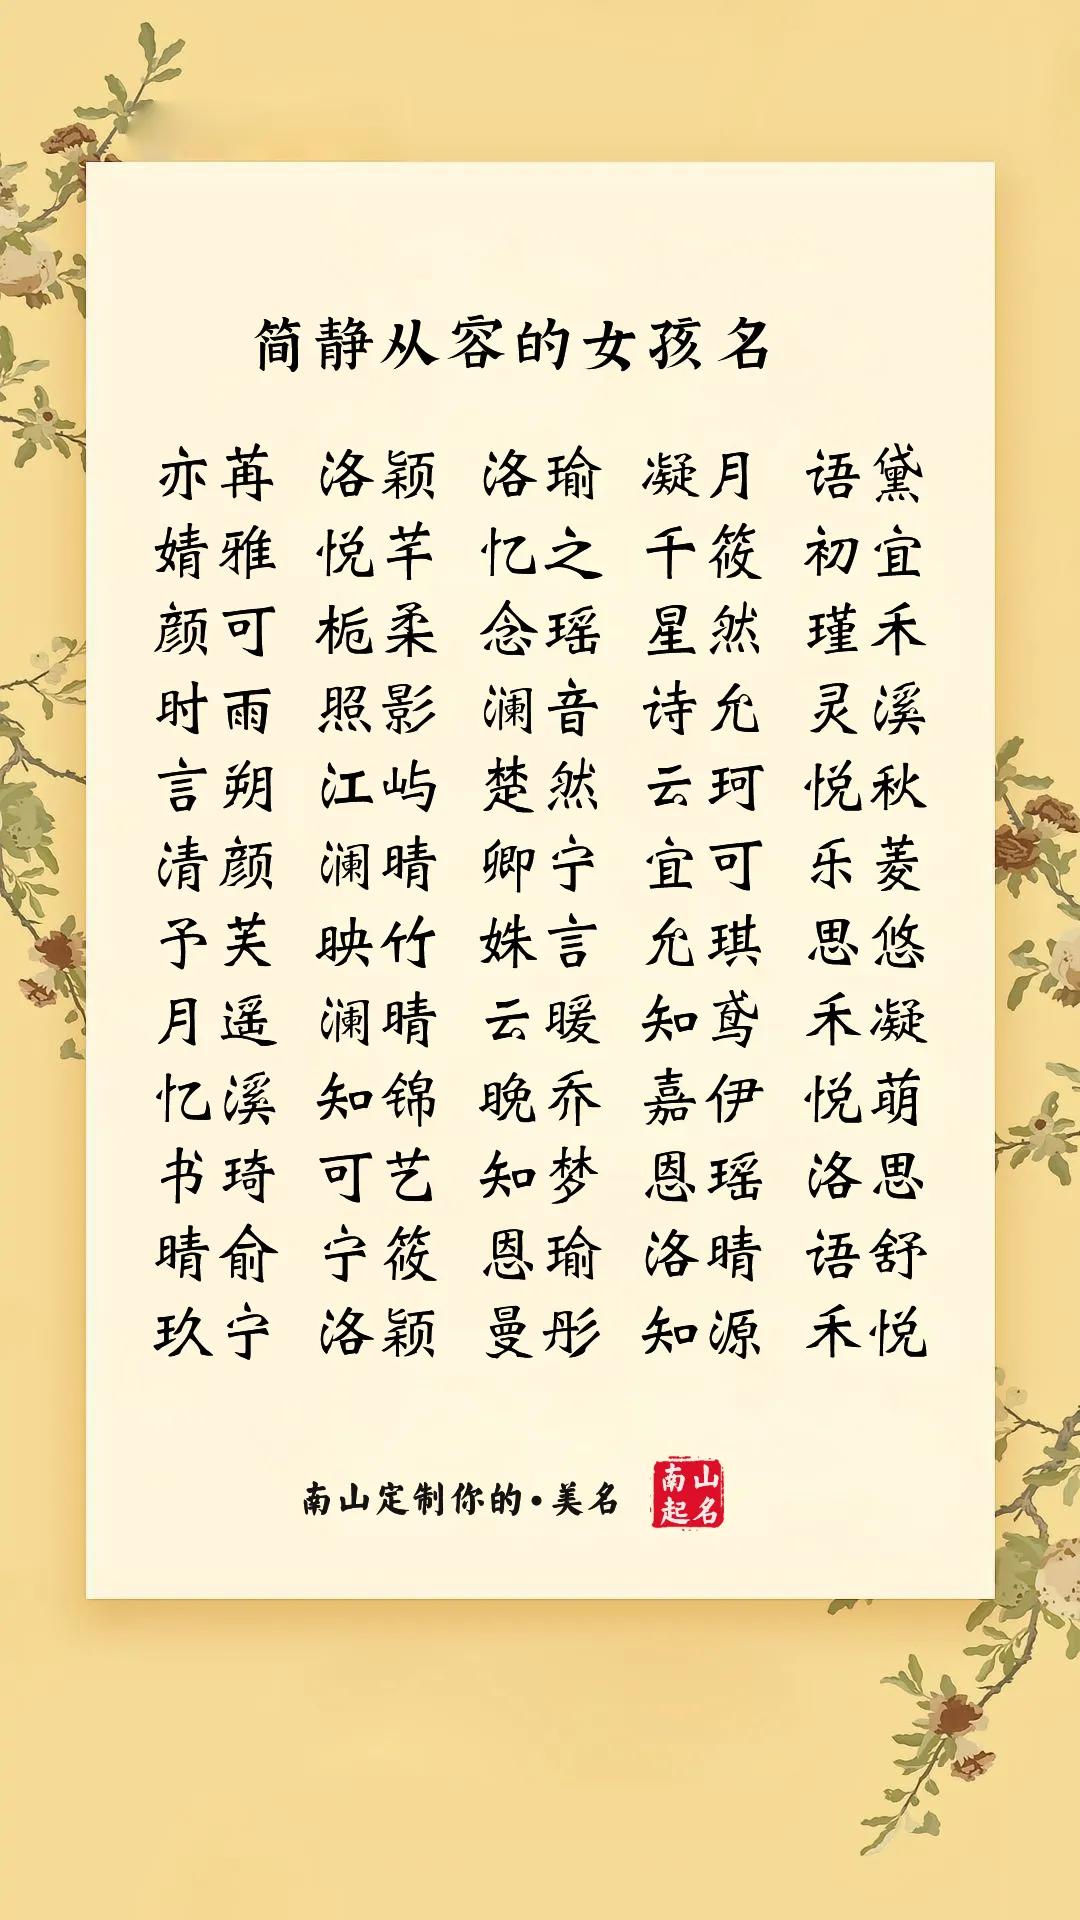 简静从容的女孩名
亦苒 洛颖 洛瑜 凝月 语黛
婧雅 悦芊 忆之 千筱 初宜
颜可 栀柔 念瑶 星然 瑾禾
时雨 照影 澜音 诗允 灵溪
言朔 江屿 楚然 云珂 悦秋
清颜 澜晴 卿宁 宜可 乐菱
予芙 映竹 姝言 允琪 思悠
月遥 澜晴 云暖 知鸢 禾凝
忆溪 知锦 晚乔 嘉伊 悦萌
书琦 可艺 知梦 恩瑶 洛思
晴俞 宁筱 恩瑜 洛晴 语舒
玖宁 洛颖 曼彤 知源 禾悦
南山定制你的·美名
南山
起名